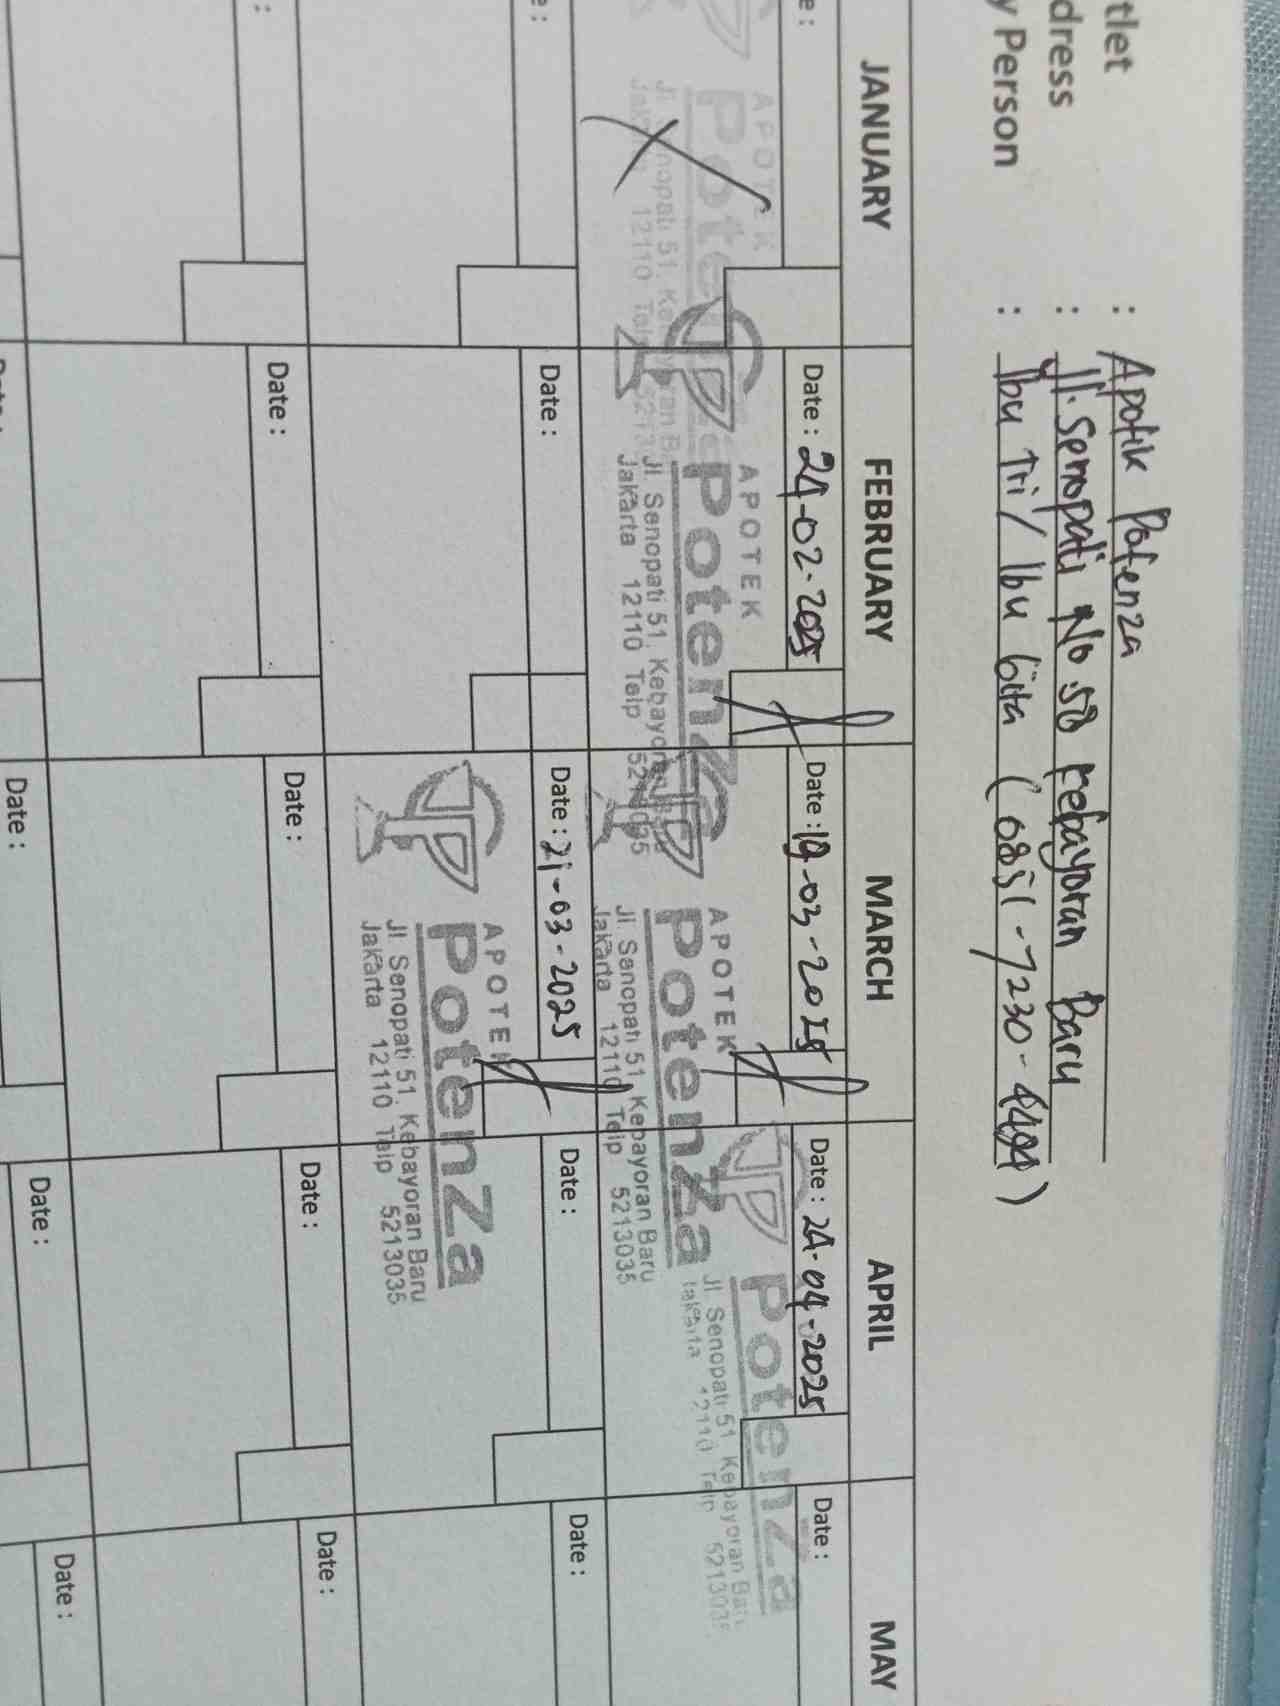 tlet : Apotik Potenza
dress : Jl. Senopati No 58 Kebayoran Baru
y Person : Ibu Tri / Ibu Gita (0851-7230-4494)
JANUARY FEBRUARY MARCH APRIL MAY
e : Date : 24-02-2025 Date : 19-03-2025 Date : 24-04-2025 Date :
APOTEK APOTEK APOTEK
Potenza Potenza Potenza
Jl. Senopati 51, Kebayoran Baru Jl. Senopati 51, Kebayoran Baru Jl. Senopati 51, Kebayoran Baru
Jakarta 12110 Telp 5213035 Jakarta 12110 Telp 5213035 Jakarta 12110 Telp 5213035
e : Date : Date : 21-03-2025 Date : Date :
APOTEK
Potenza
Jl. Senopati 51, Kebayoran Baru
Jakarta 12110 Telp 5213035
: Date : Date : Date : Date :
Date : Date : Date :